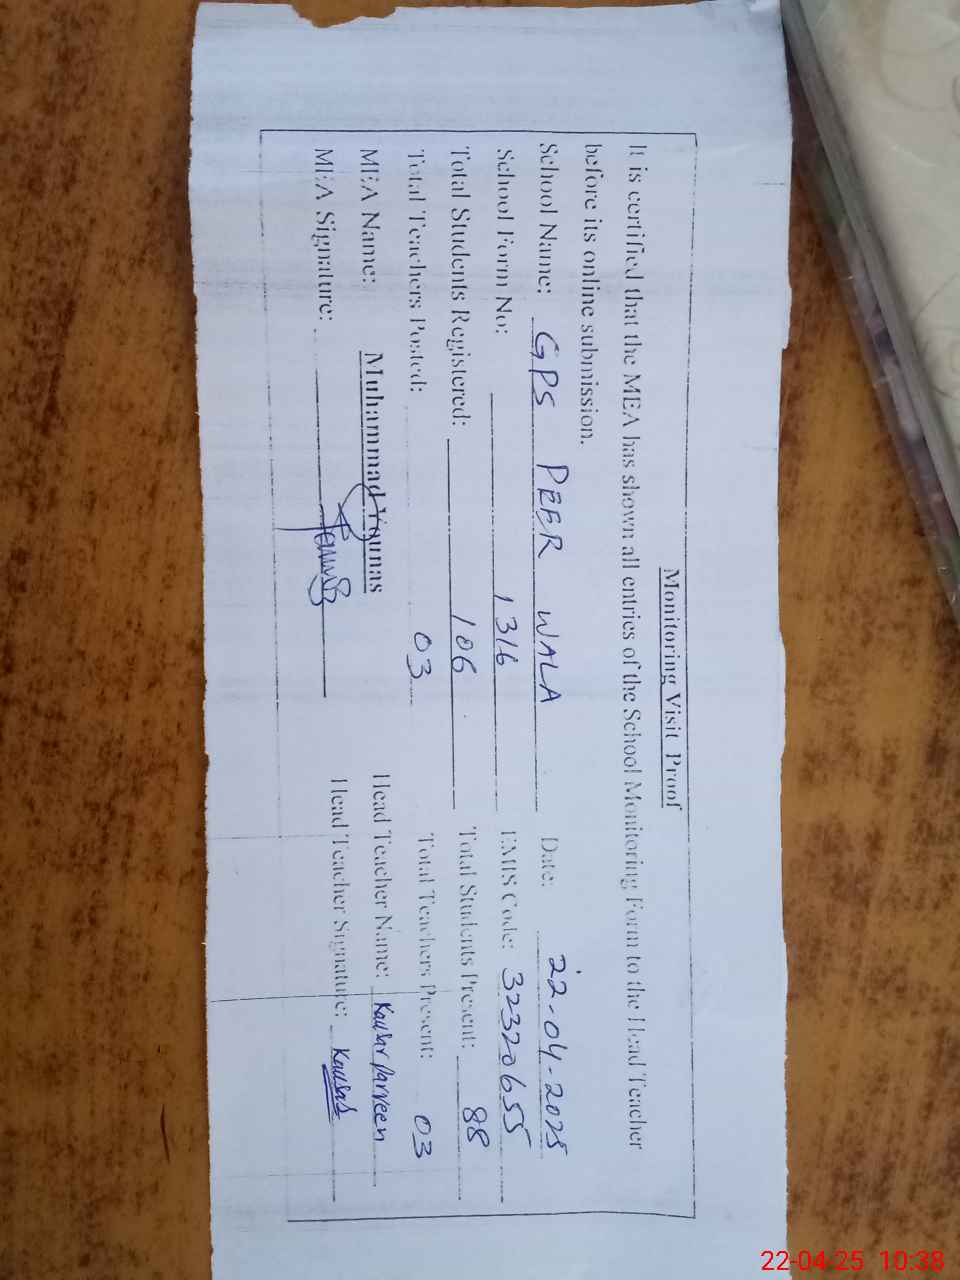 Monitoring Visit Proof
It is certified that the MEA has shown all entries of the School Monitoring Form to the Head Teacher
before its online submission.
School Name: GPS PEER WALA Date: 22-04-2025
School Form No: 1316 EMIS Code: 32320655
Total Students Registered: 106 Total Students Present: 88
Total Teachers Posted: 03 Total Teachers Present: 03
MEA Name: Muhammad Younas Head Teacher Name: Kausar Parveen
MEA Signature: Head Teacher Signature: Kausar
22-04-25 10:38